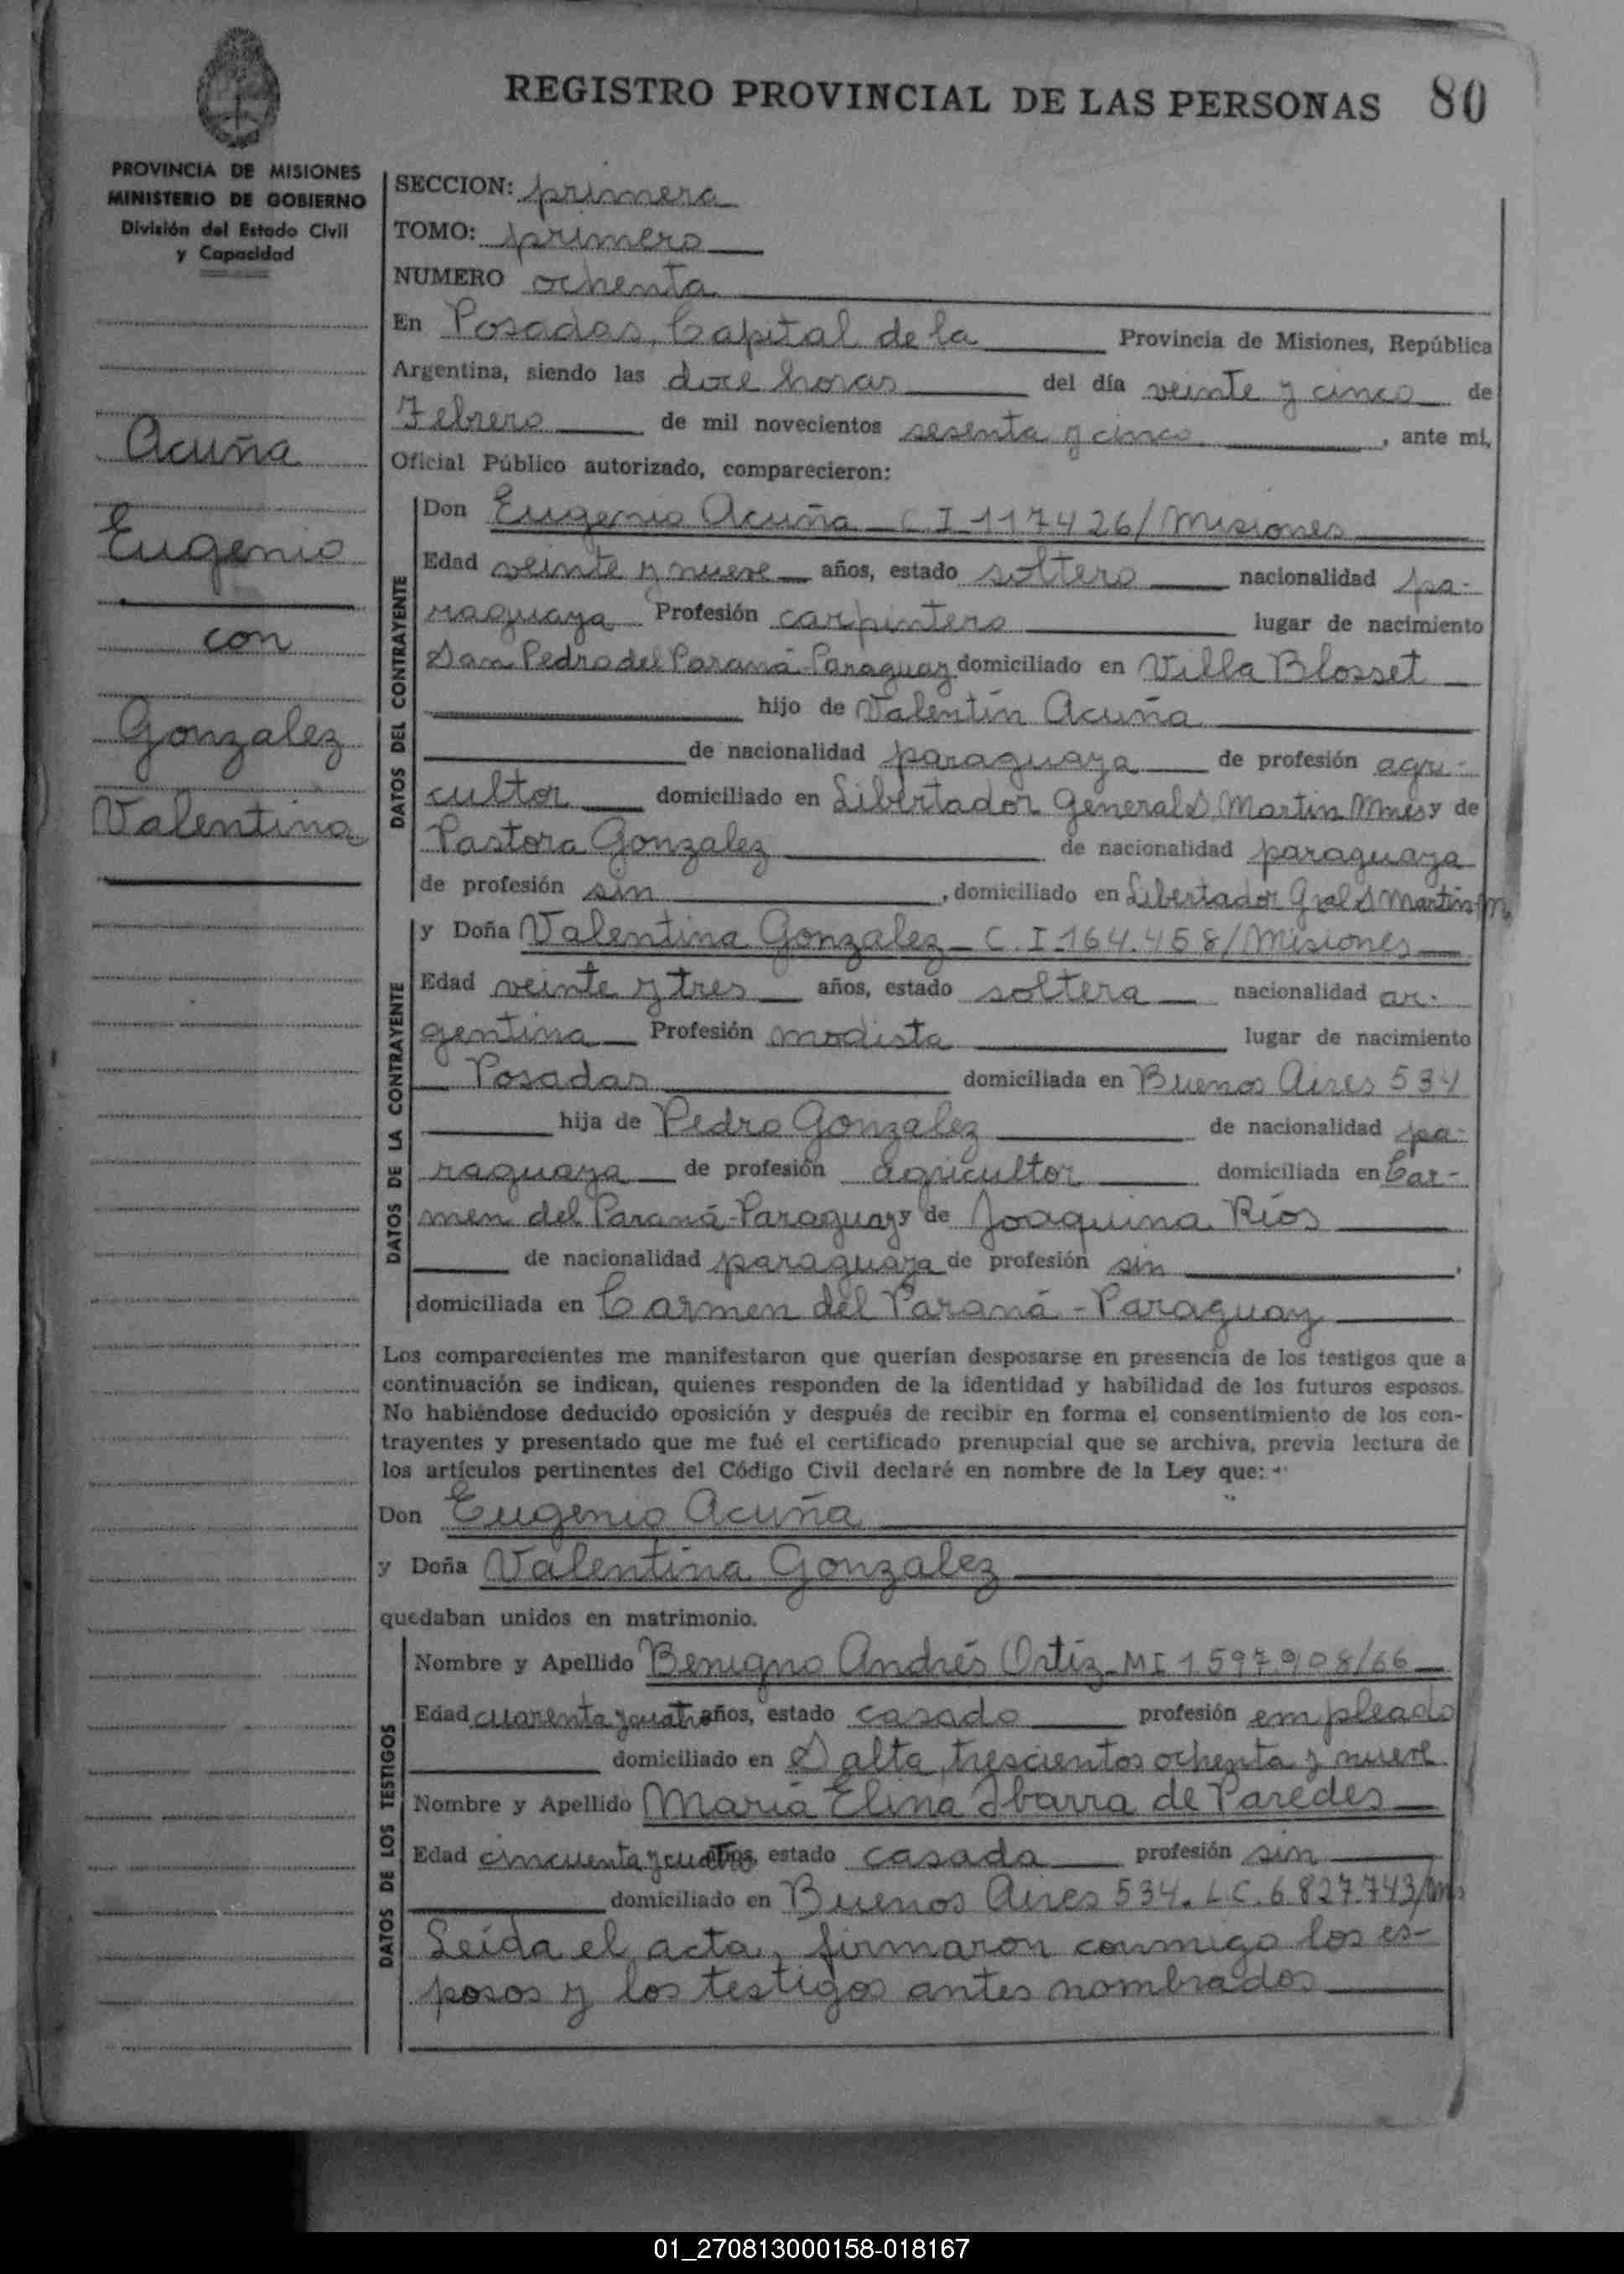 REGISTRO PROVINCIAL DE LAS PERSONAS 80
PROVINCIA DE MISIONES
MINISTERIO DE GOBIERNO
División del Estado Civil
y Capacidad
Acuña
Eugenio
con
Gonzalez
Valentina
SECCION: primera
TOMO: primero
NUMERO ochenta
En Posadas, Capital de la Provincia de Misiones, República
Argentina, siendo las doce horas del día veinte y cinco de
Febrero de mil novecientos sesenta y cinco, ante mí,
Oficial Público autorizado, comparecieron:
DATOS DEL CONTRAYENTE
Don Eugenio Acuña - C.I. 117426/Misiones
Edad veinte y nueve años, estado soltero nacionalidad pa-
raguaya Profesión carpintero lugar de nacimiento
San Pedro del Paraná-Paraguay domiciliado en Villa Blosset
hijo de Valentín Acuña
de nacionalidad paraguaya de profesión agri-
cultor domiciliado en Libertador General S. Martin Mnes y de
Pastora Gonzalez de nacionalidad paraguaya
de profesión sin, domiciliado en Libertador Gral S Martin-M.
DATOS DE LA CONTRAYENTE
y Doña Valentina Gonzalez - C.I. 164.458/Misiones
Edad veinte y tres años, estado soltera nacionalidad ar-
gentina Profesión modista lugar de nacimiento
Posadas domiciliada en Buenos Aires 534
hija de Pedro Gonzalez de nacionalidad pa-
raguaya de profesión agricultor domiciliada en Car-
men del Paraná-Paraguay y de Joaquina Ríos
de nacionalidad paraguaya de profesión sin,
domiciliada en Carmen del Paraná - Paraguay
Los comparecientes me manifestaron que querían desposarse en presencia de los testigos que a
continuación se indican, quienes responden de la identidad y habilidad de los futuros esposos.
No habiéndose deducido oposición y después de recibir en forma el consentimiento de los con-
trayentes y presentado que me fué el certificado prenupcial que se archiva, previa lectura de
los artículos pertinentes del Código Civil declaré en nombre de la Ley que:
Don Eugenio Acuña
y Doña Valentina Gonzalez
quedaban unidos en matrimonio.
DATOS DE LOS TESTIGOS
Nombre y Apellido Benigno Andrés Ortiz - MI 1.597.908/66
Edad cuarenta y cuatro años, estado casado profesión empleado
domiciliado en Salta, trescientos ochenta y nueve
Nombre y Apellido María Elina Ibarra de Paredes
Edad cincuenta y cuatro años, estado casada profesión sin
domiciliado en Buenos Aires 534. L.C. 6.827.743/Mns
Leída el acta, firmaron conmigo los es-
posos y los testigos antes nombrados
01_270813000158-018167